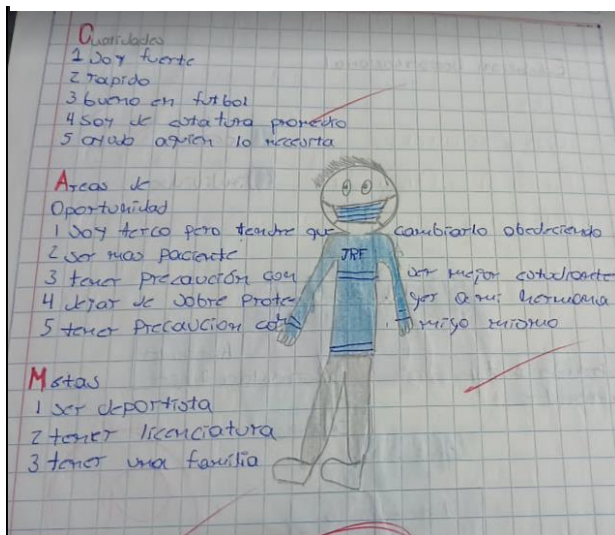 Cualidades
1 Soy fuerte
2 rapido
3 bueno en futbol
4 Soy de estatura promedio
5 ayudo aquien lo necesita
Areas de
Oportunidad
1 Soy terco pero tendre que cambiarlo obedeciendo
2 ser mas paciente
3 tener precaución con ser mejor estudiante
4 dejar de sobre proteger a mi hermana
5 tener precaucion conmigo mismo
JRF
Metas
1 ser deportista
2 tener licenciatura
3 tener una familia